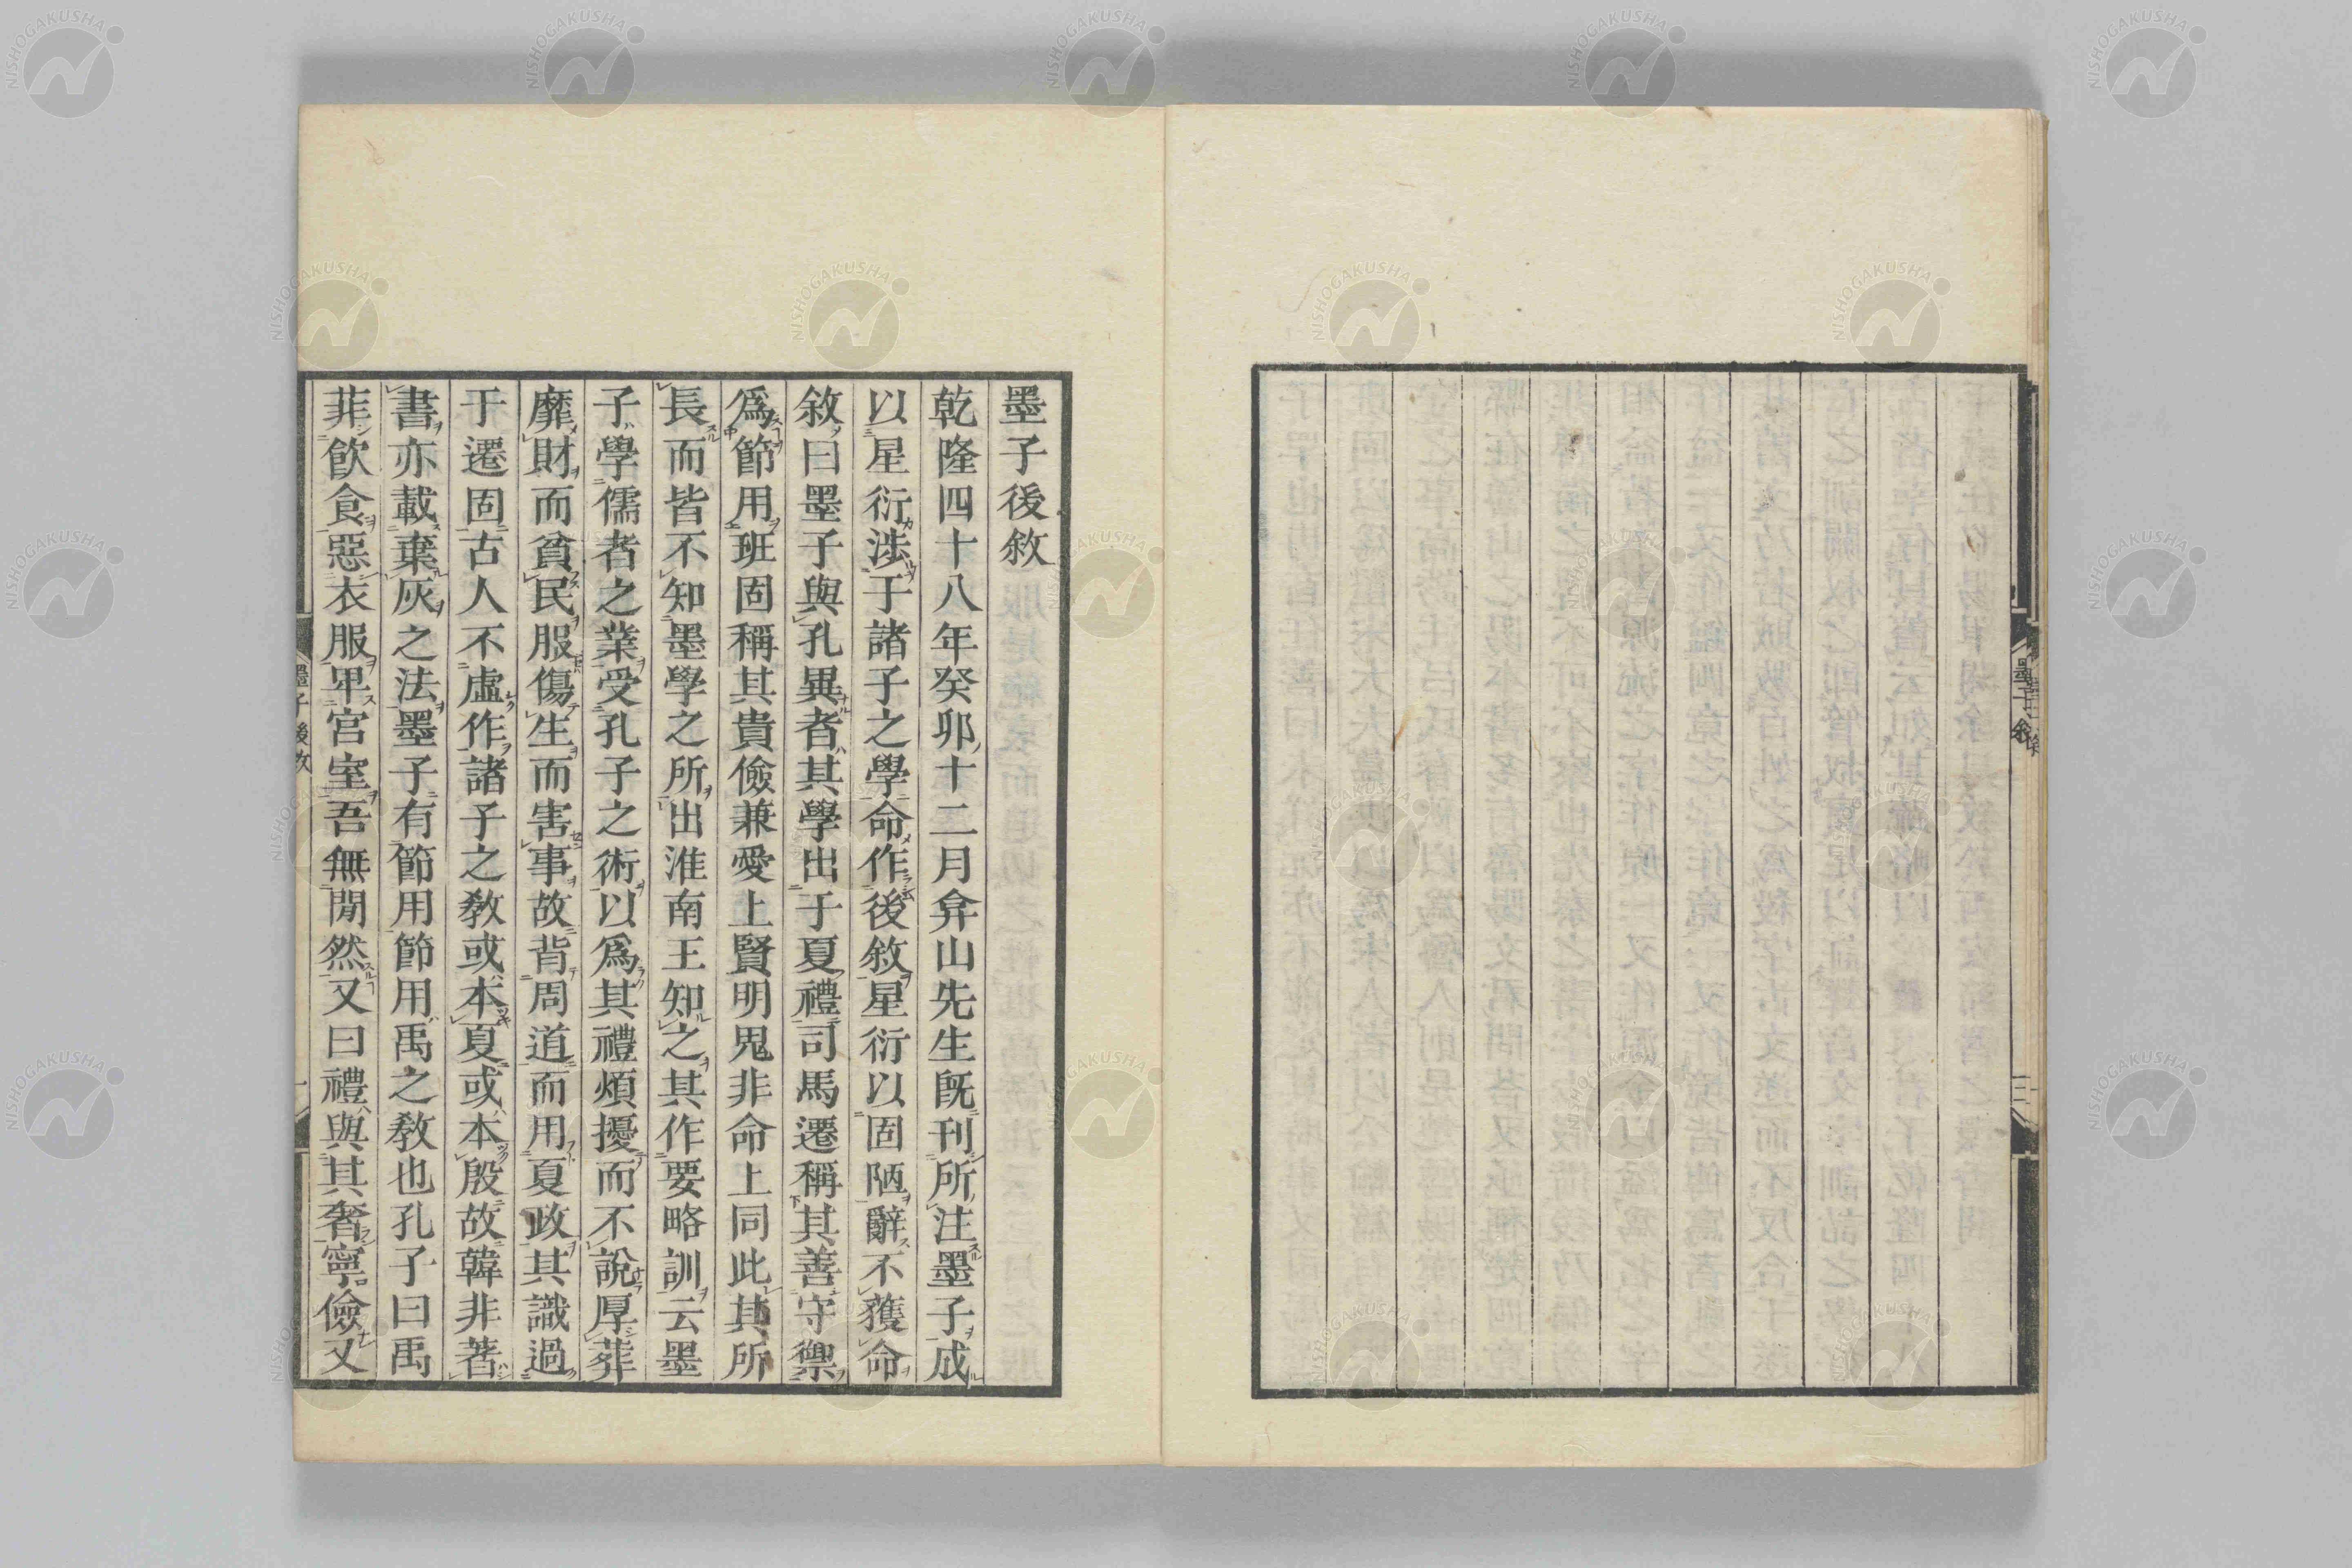 墨子後敘
乾隆四十八年癸卯十二月弇山先生旣刊所注墨子成
以星衍涉于諸子之學命作後敘星衍以固陋辭不獲命
敘曰墨子與孔異者其學出于夏禮司馬遷稱其善守禦
爲節用班固稱其貴儉兼愛上賢明鬼非命上同此其所
長而皆不知墨學之所出淮南王知之其作要略訓云墨
子學儒者之業受孔子之術以爲其禮煩擾而不說厚葬
靡財而貧民服傷生而害事故背周道而用夏政其識過
于遷固古人不虛作諸子之敎或本夏或本殷故韓非著
書亦載棄灰之法墨子有節用節用禹之敎也孔子曰禹
菲飲食惡衣服卑宮室吾無閒然又曰禮與其奢寧儉又
墨子後敘
NISHOGAKUSHA